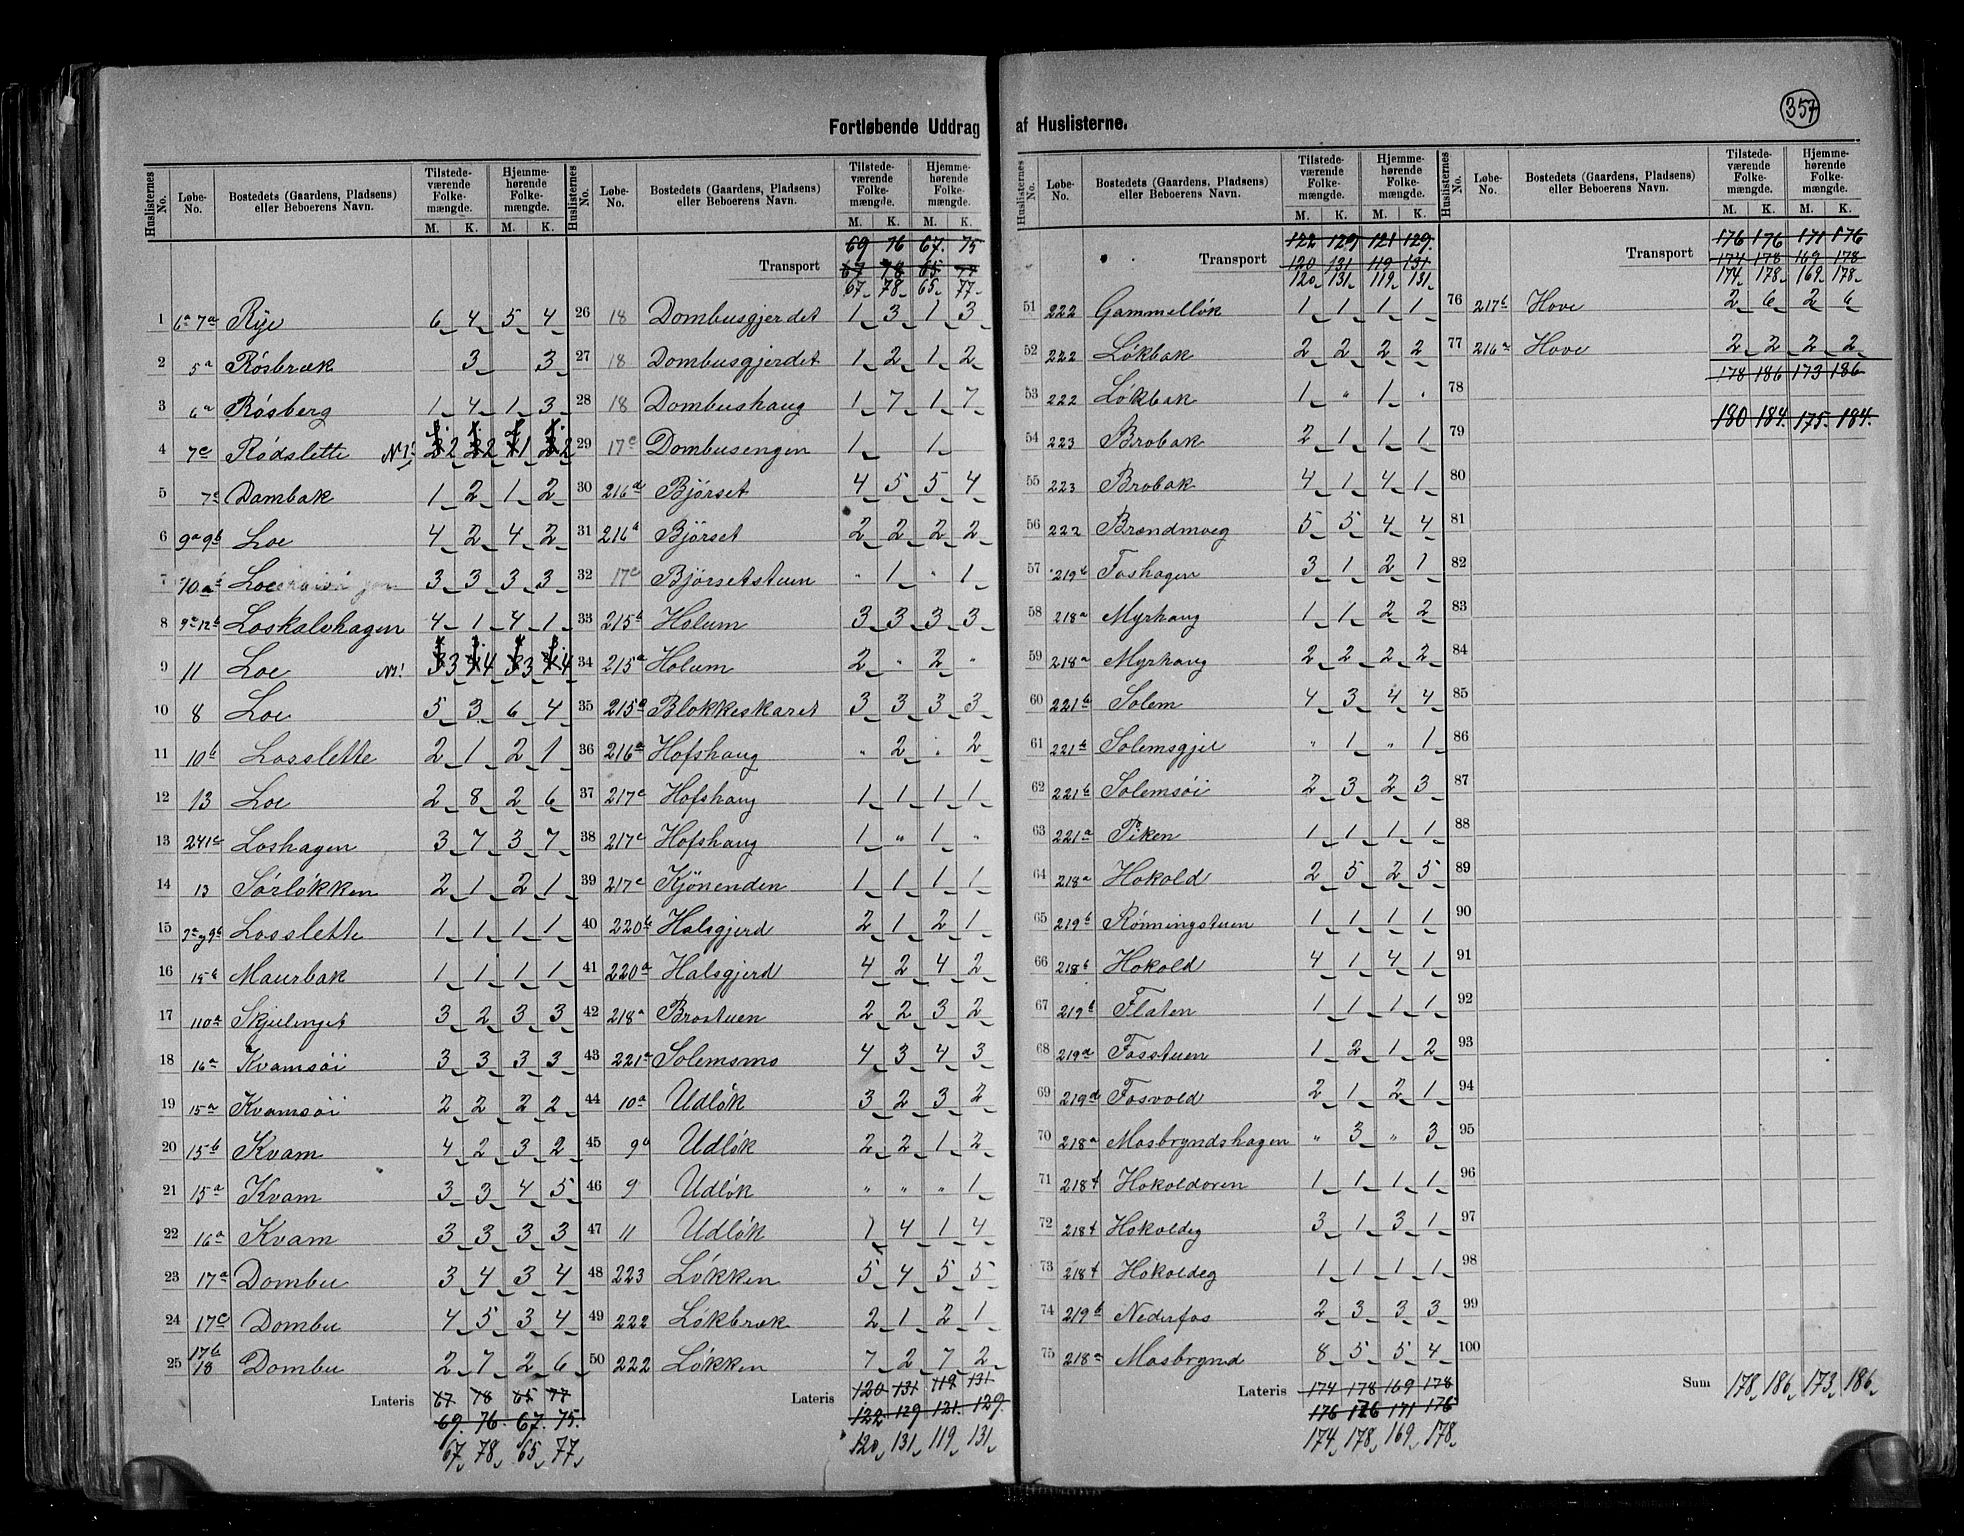 357
Fortløbende Uddrag af Huslisterne.
Huslisternes No. Løbe-No. Bostedets (Gaardens, Pladsens) eller Beboerens Navn. Tilstedeværende Folkemængde. Hjemmehørende Folkemængde.
M. K. M. K.
1 6a 7a Rye 6 4 5 4
2 5a Røsbræk 3 3
3 6a Røsberg 1 4 1 3
4 7c Rødslette N! 2 2 1 2
5 7c Dambak 1 2 1 2
6 9a 9b Loe 4 2 4 2
7 10a Loe 3 3 3 3
8 9a 12b Loskalehagen 4 1 4 1
9 11 Loe N! 3 4 3 4
10 8 Loe 5 3 6 4
11 10b Losslette 2 1 2 1
12 13 Loe 2 8 2 6
13 241c Loshagen 3 7 3 7
14 13 Sørløkken 2 1 2 1
15 Losslette 1 1 1 1
16 15b Maurbak 1 1 1 1
17 110a Skjelinget 3 2 3 3
18 16a Kvamsøi 3 3 3 3
19 15a Kvamsøi 2 2 2 2
20 15b Kvam 4 2 3 2
21 15a Kvam 3 3 4 5
22 16a Kvam 3 3 3 3
23 17a Dombu 3 4 3 4
24 17c Dombu 4 5 3 4
25 17b 18 Dombu 2 7 2 6
Lateris 67 78 65 77
69. 76. 67. 75.
67 78 65 77
Huslisternes No. Løbe-No. Bostedets (Gaardens, Pladsens) eller Beboerens Navn. Tilstedeværende Folkemængde. Hjemmehørende Folkemængde.
M. K. M. K.
69 76 67. 75
Transport 67 78 65 77
67 78 65 77
26 18 Dombusgjerdet 1 3 1 3
27 18 Dombusgjerdet 1 2 1 2
28 18 Dombushaug 1 7 1 7
29 17c Dombusengen 1 1
30 216d Bjørset 4 5 5 4
31 216a Bjørset 2 2 2 2
32 17c Bjørsetstuen " 1 " 1
33 215b Holum 3 3 3 3
34 215a Holum 2 " 2 "
35 215a Blokkeskaret 3 3 3 3
36 216a Hofshaug " 2 " 2
37 217c Hofshaug 1 1 1 1
38 217c Hofshaug 1 " 1 "
39 217c Kjønenden 1 1 1 1
40 220b Halsgjerd 2 1 2 1
41 220a Halsgjerd 4 2 4 2
42 218a Brostuen 2 2 3 2
43 221a Solemsmo 4 3 4 3
44 10a Udløk 3 2 3 2
45 9a Udløk 2 2 1 2
46 9 Udløk " " " 1
47 11 Udløk 1 4 1 4
48 223 Løkken 5 4 5 5
49 222 Løkbræk 2 1 2 1
50 222 Løkken 7 2 7 2
Lateris 120 131 119 131
122. 129 121. 129.
120 131 119 131
Huslisternes No. Løbe-No. Bostedets (Gaardens, Pladsens) eller Beboerens Navn. Tilstedeværende Folkemængde. Hjemmehørende Folkemængde.
M. K. M. K.
122 129 121 129.
Transport 120 131 119 131
120 131 119 131
51 222 Gammelløk 1 1 1 1
52 222 Løkbak 2 2 2 2
53 222 Løkbak 1 " 1 "
54 223 Brobak 2 1 1 1
55 223 Brobak 4 1 4 1
56 222 Brændmoeg 5 5 4 4
57 219b Foshagen 3 1 2 1
58 218a Myrhaug 1 1 2 2
59 218a Myrhaug 2 2 2 2
60 221b Solem 4 3 4 4
61 221b Solemsgjel " 1 " 1
62 221b Solemsøi 2 3 2 3
63 221a Piken 1 1 1 1
64 218a Hokold 2 5 2 5
65 219b Rønningstuen 1 1 1 1
66 218b Hokold 4 1 4 1
67 219b Flaten 1 1 1 1
68 219a Fosstuen 1 2 1 2
69 219d Fosvold 2 1 2 1
70 218a Mosbryndshagen " 3 " 3
71 218f Hokoldoren 1 1 1 1
72 218f Hokoldeg 3 1 3 1
73 218f Hokoldeg 1 1 1 1
74 219b Nederfos 2 3 3 3
75 218a Mosbrynd 8 5 5 4
Lateris 174 178 169 178
176 176 171 176
174 178 169 178
Huslisternes No. Løbe-No. Bostedets (Gaardens, Pladsens) eller Beboerens Navn. Tilstedeværende Folkemængde. Hjemmehørende Folkemængde.
M. K. M. K.
176 176 171 176
Transport 174 178 169 178
174 178 169 178
76 217b Hove 2 6 2 6
77 216a Hove 2 2 2 2
178 186 173 186
78
180 184. 175. 184.
79
80
81
82
83
84
85
86
87
88
89
90
91
92
93
94
95
96
97
98
99
100
Sum 178 186 173 186